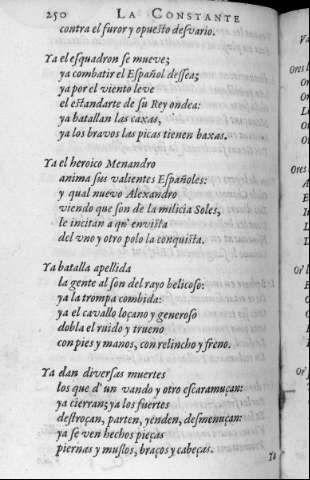 250 LA CONSTANTE
contra el furor y opuesto desvario.
Ya el esquadron se mueve;
ya combatir el Español dessea;
ya por el viento leve
el estandarte de su Rey ondea:
ya batallan las caxas,
ya los bravos las picas tienen baxas.
Ya el heroico Menandro
anima sus valientes Españoles:
y qual nuevo Alexandro
viendo que son de la milicia Soles,
le incitan a qu' envista
del uno y otro polo la conquista.
Ya batalla apellida
la gente al son del rayo belicoso:
ya la trompa combida:
ya el cavallo loçano y generoso
dobla el ruido y trueno
con pies y manos, con relincho y freno.
Ya dan diversas muertes
los que d' un vando y otro escaramuçan:
ya cierran; ya los fuertes
destroçan, parten, yenden, desmenuçan:
ya se ven hechos pieças
piernas y muslos, braços y cabeças.
Ya